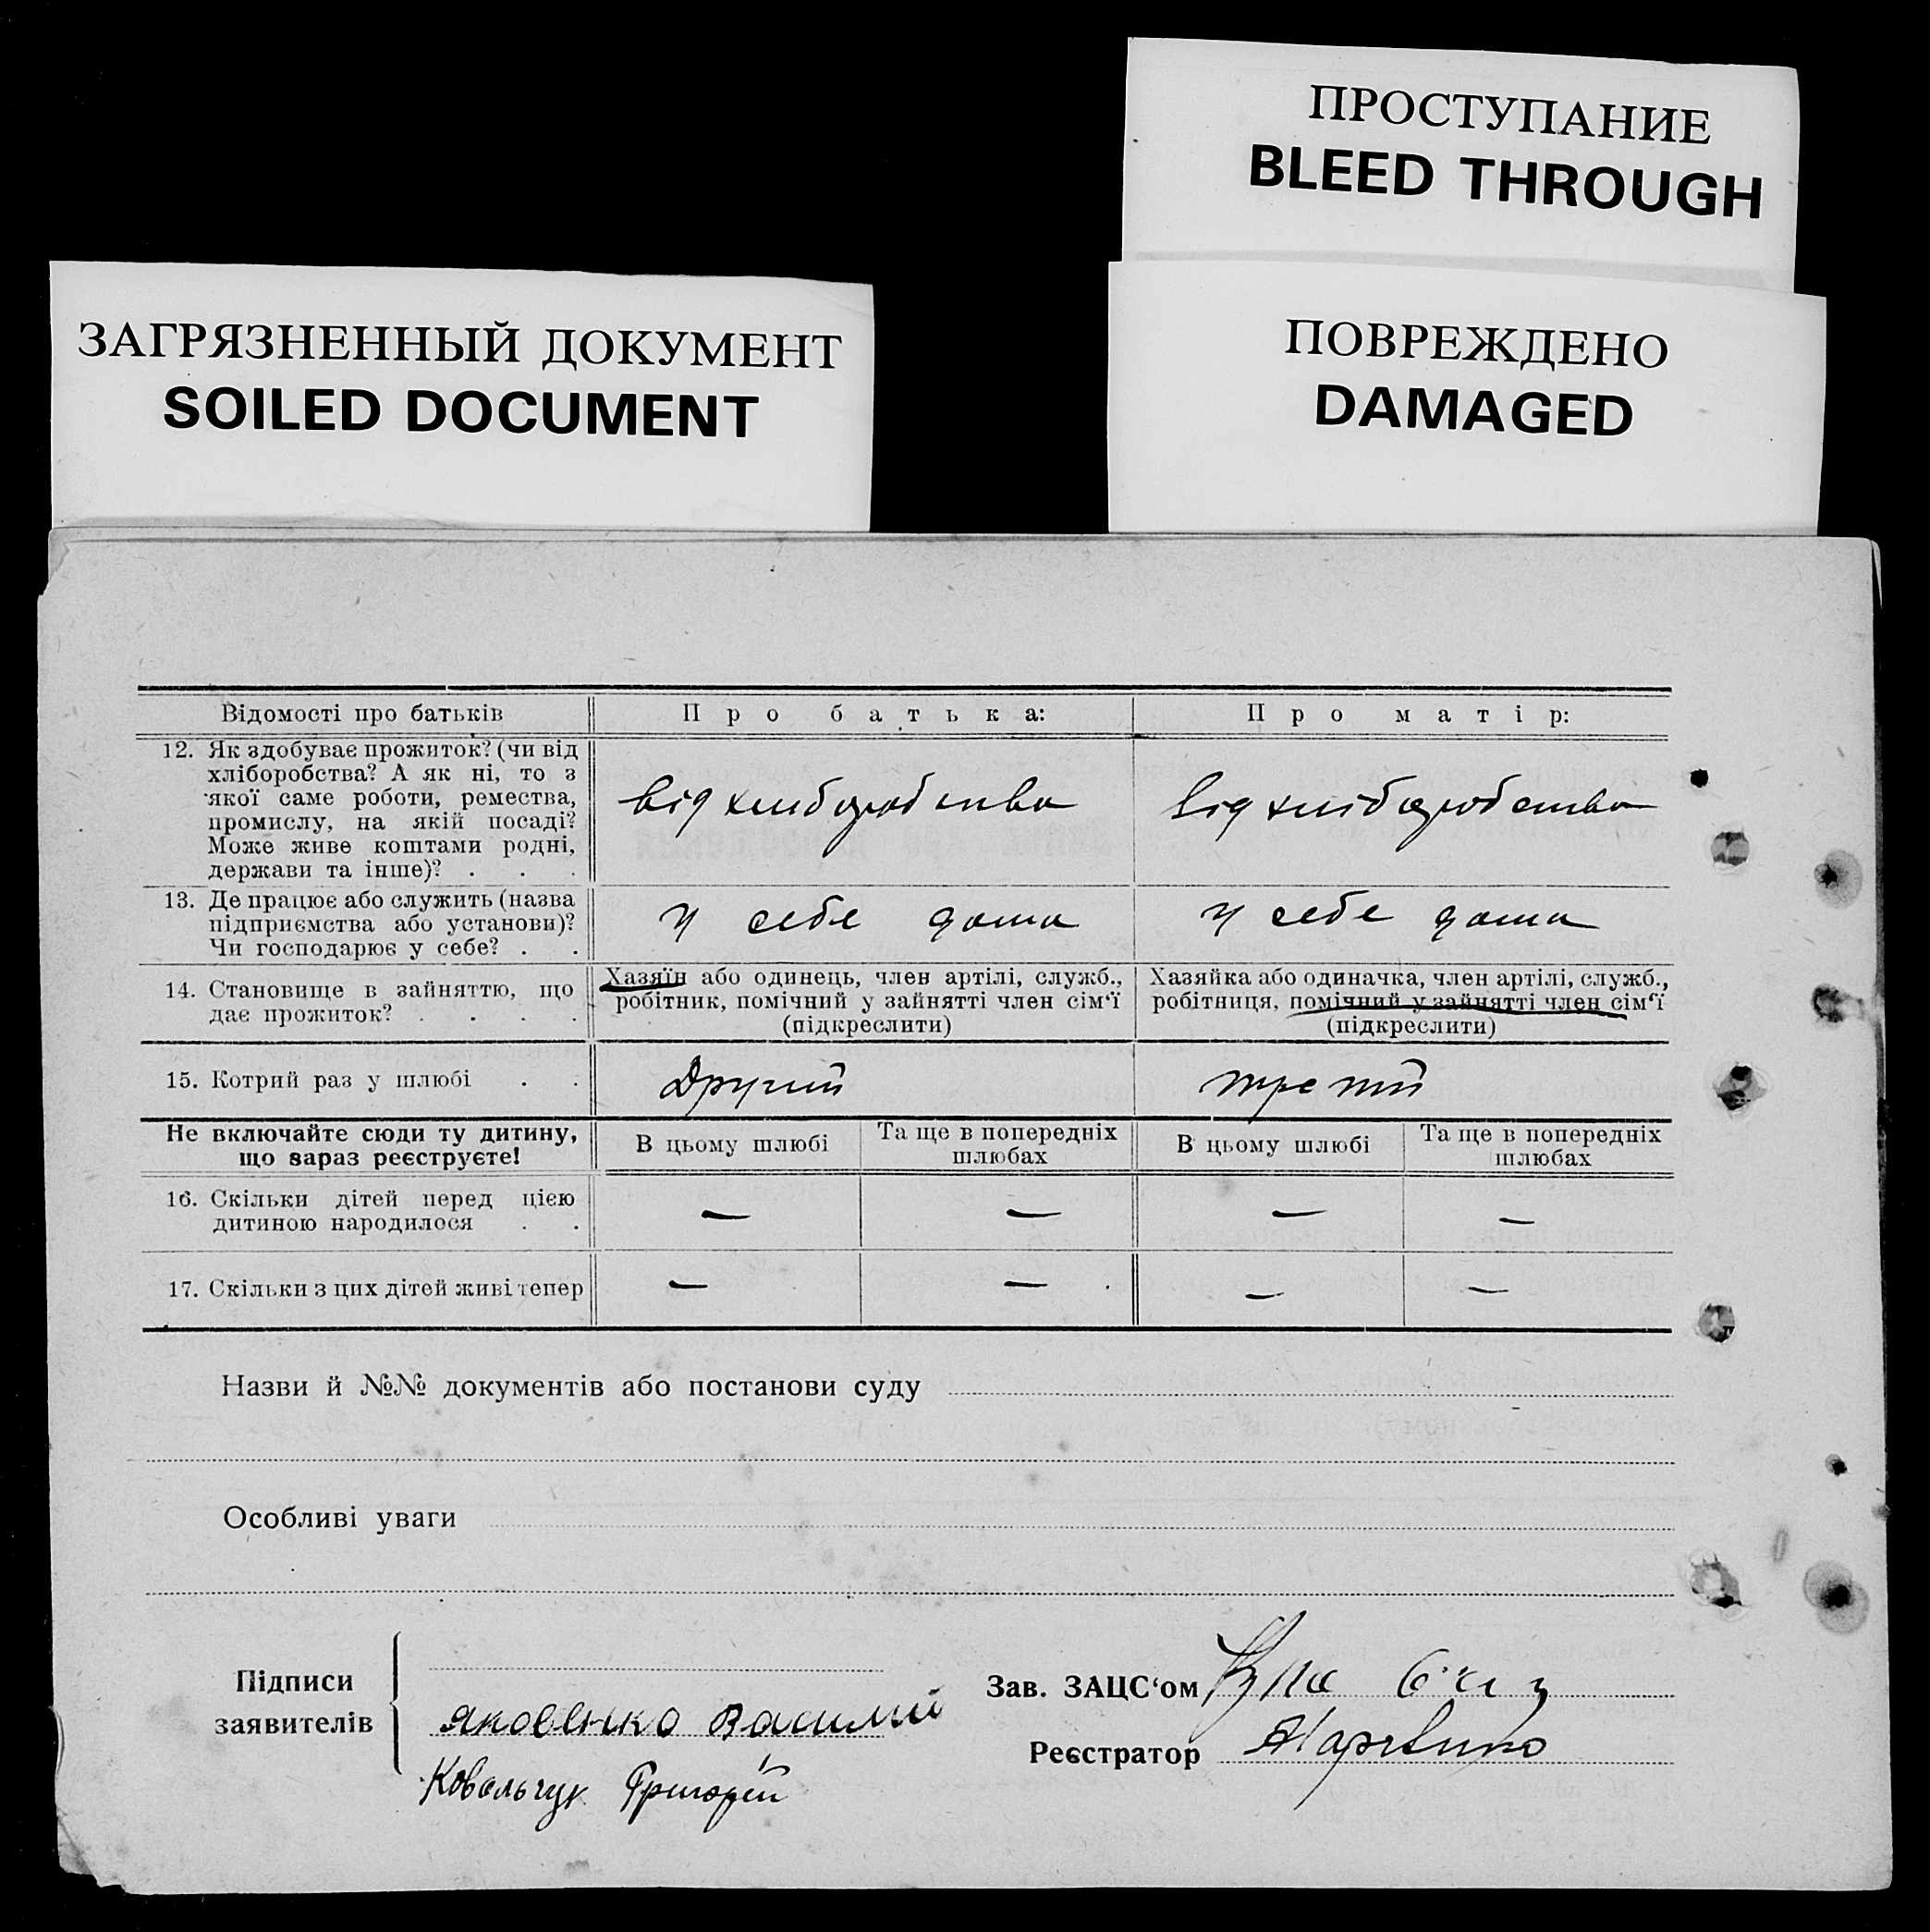 ПРОСТУПАНИЕ
BLEED THROUGH
ЗАГРЯЗНЕННЫЙ ДОКУМЕНТ
SOILED DOCUMENT
ПОВРЕЖДЕНО
DAMAGED
Відомості про батьків Про батька: Про матір:
12. Як здобуває прожиток? (чи від
хліборобства? А як ні, то з
якої саме роботи, ремества,
промислу, на якій посаді?
Може живе коштами родні,
держави та інше)? . . .
від хліборобства від хліборобства
13. Де працює або служить (назва
підприємства або установи)?
Чи господарює у себе? . .
у себе дома у себе дома
14. Становище в зайняттю, що
дає прожиток? . . . .
Хазяїн або одинець, член артілі, служб.,
робітник, помічний у зайнятті член сім'ї
(підкреслити)
Хазяйка або одиначка, член артілі, служб.,
робітниця, помічний у зайнятті член сім'ї
(підкреслити)
15. Котрий раз у шлюбі . . Другий третій
Не включайте сюди ту дитину,
що зараз реєструєте!
В цьому шлюбі
Та ще в попередніх
шлюбах
В цьому шлюбі
Та ще в попередніх
шлюбах
16. Скільки дітей перед цією
дитиною народилося . .
— — — —
17. Скільки з цих дітей живі тепер — — — —
Назви й №№ документів або постанови суду
Особливі уваги
Підписи
заявителів
Яковенко Василий
Ковальчук Григорій
Зав. ЗАЦС‘ом
Реєстратор